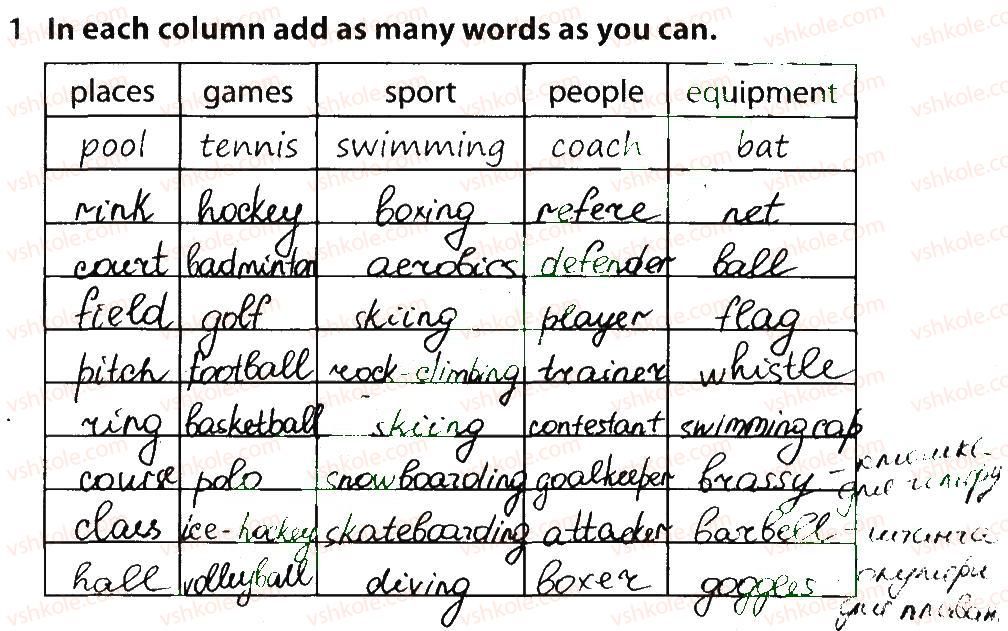 1 In each column add as many words as you can.
places games sport people equipment
pool tennis swimming coach bat
rink hockey boxing refere net
court badminton aerobics defender ball
field golf skiing player flag
pitch football rock-climbing trainer whistle
ring basketball skiing contestant swimming cap
course polo snowboarding goalkeeper brassy -
class ice-hockey skateboarding attacker barbell - штанга
hall volleyball diving boxer goggles окуляри
для плаван.